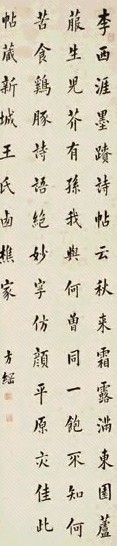 李西涯墨蹟詩帖云秋来霜露滿東園蘆
菔生兒芥有孫我與何曽同一飽不知何
苦食鷄豚詩語絕妙字仿顔平原亦佳此
帖藏新城王氏鹵樵家
方綱